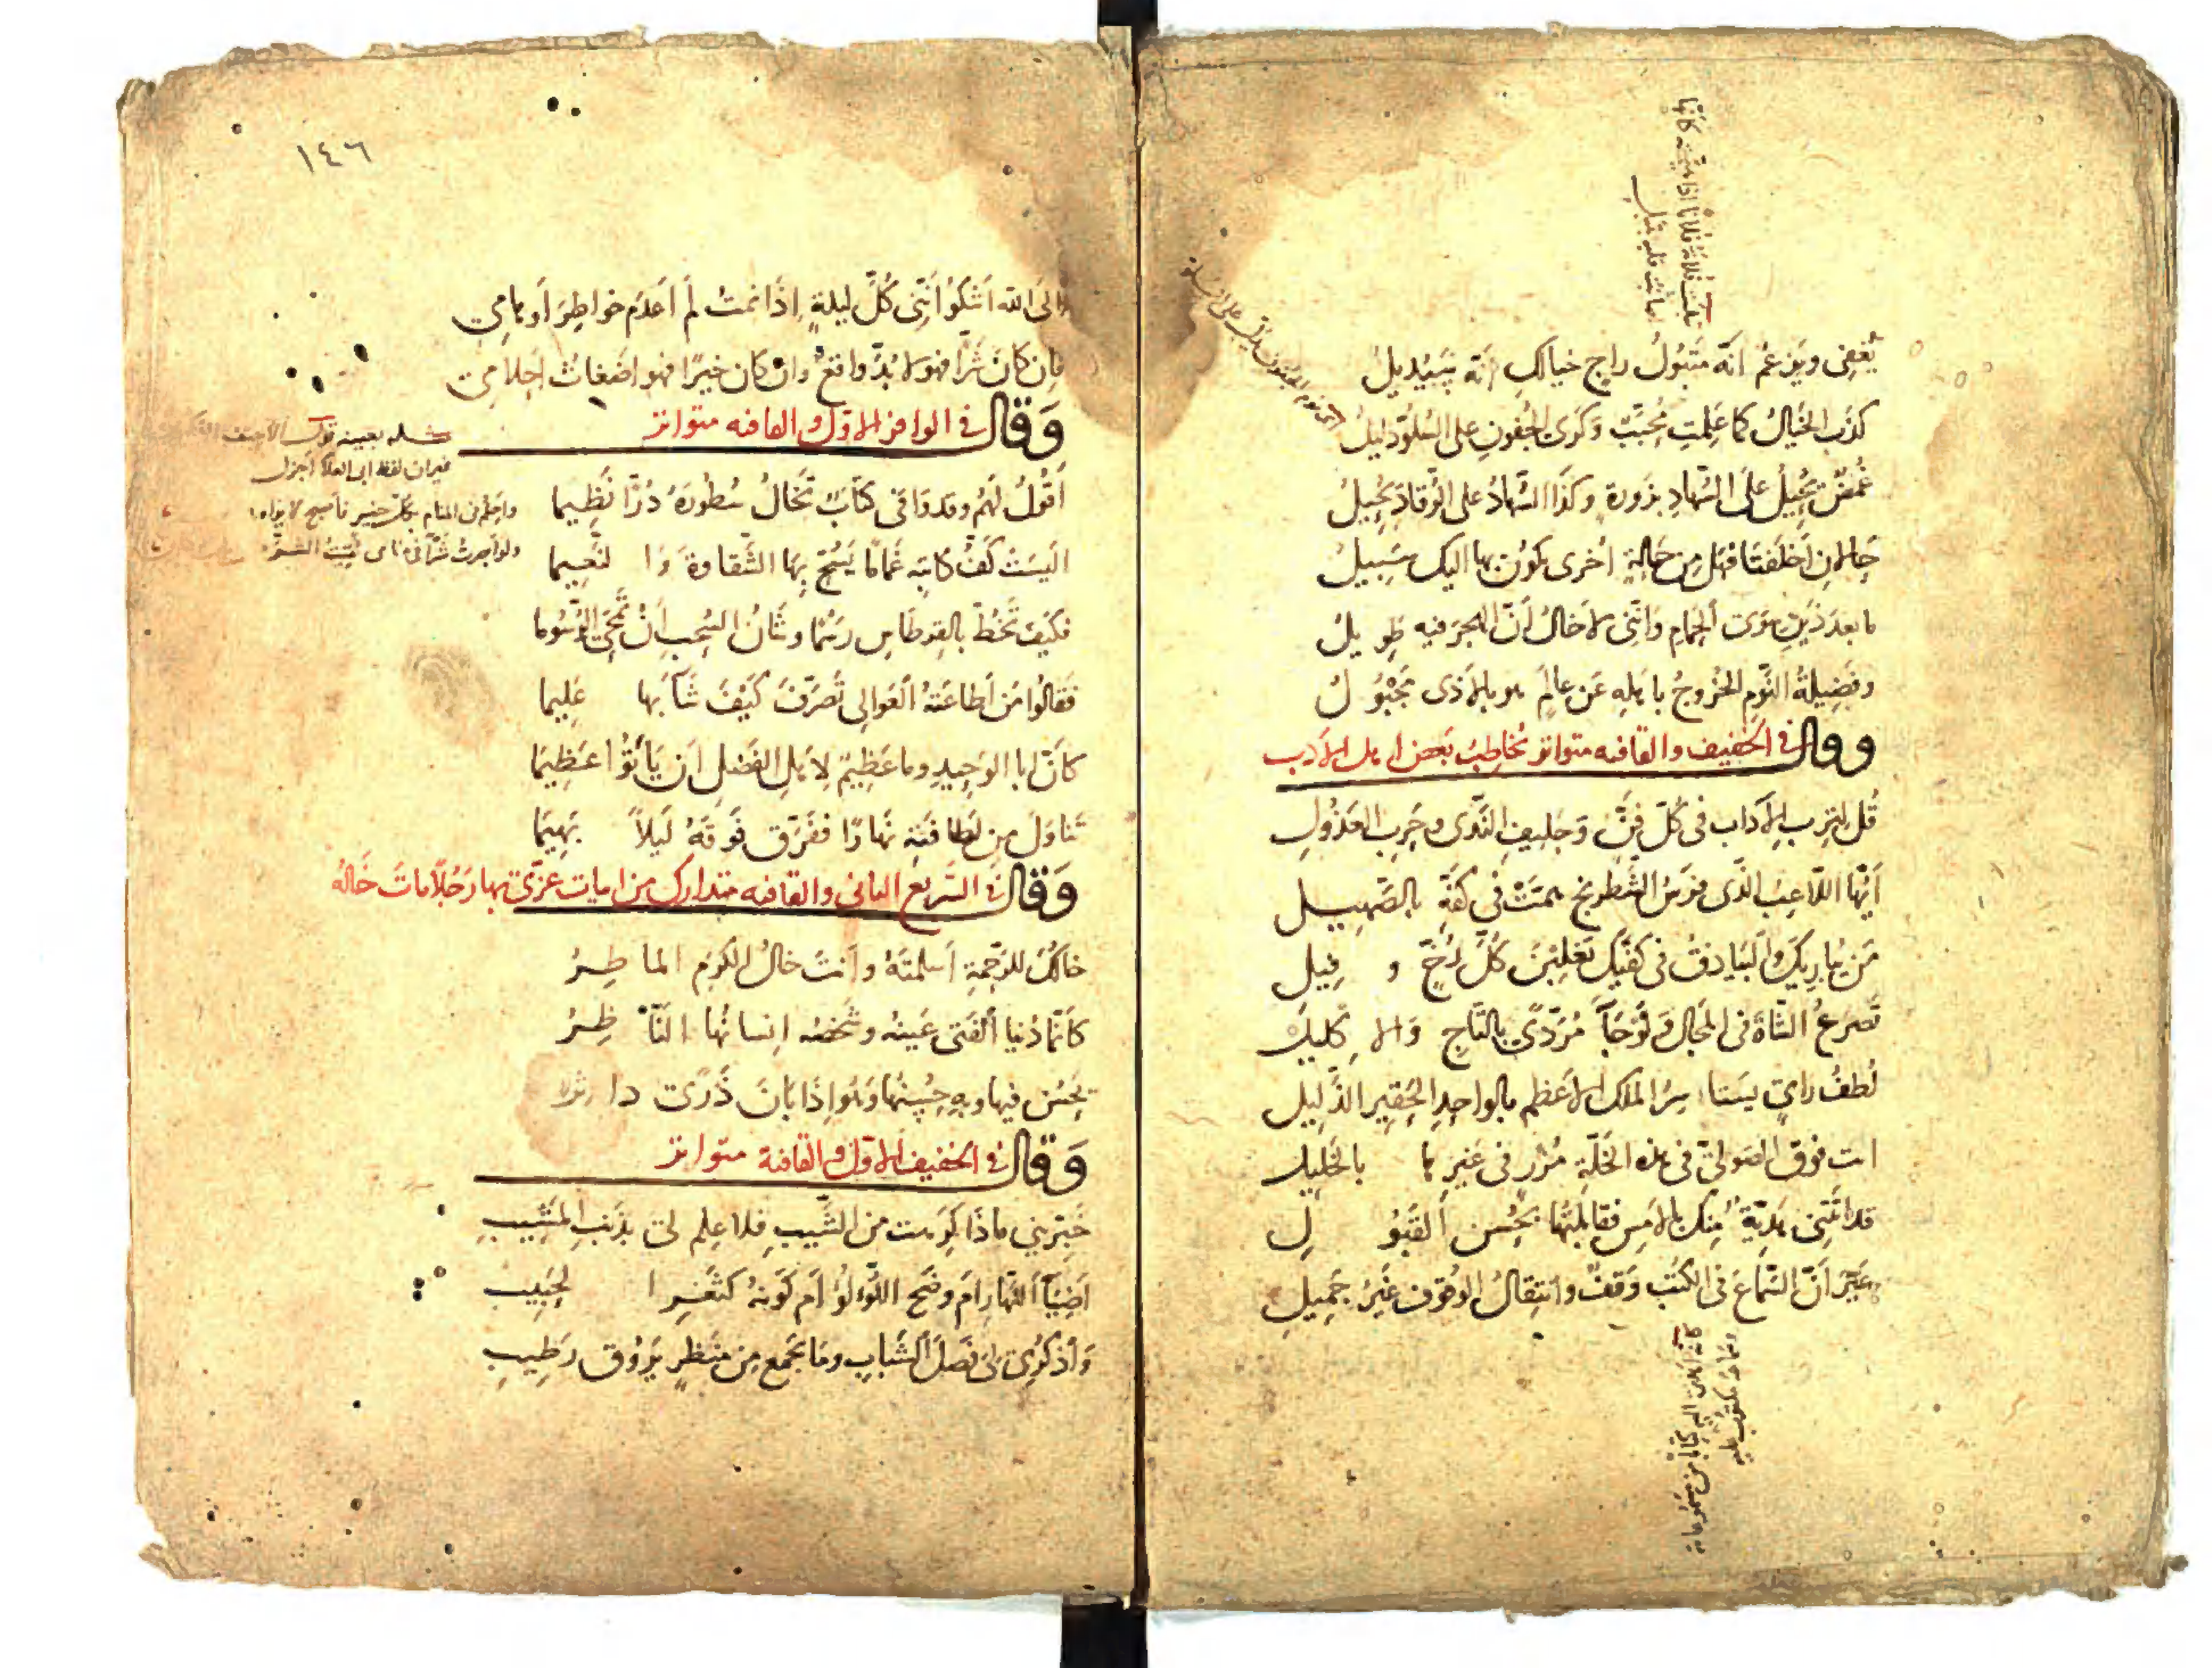 يُغضِي ويَزعُمُ أنّه مَتبُولُ راجٍ خيالكِ أنّه سيُديلُ
كذَب الخَيالُ كما عَلِمتِ مُحِبَّتي وَكَرَى الجُفونِ على السُلُوّ دليلُ
غُمضٌ يُحِيلُ على السُّهادِ بزَورةٍ وكذا السُّهادُ على الرُّقادِ يُحِيلُ
حالانِ أخلَفَتا فهَل مِن حالةٍ أخرى يكونُ بها اليكِ سَبيلُ
ما بعدَ ذَينِ سِوَى الحِمامِ وإنّني لاخالُ أنّ الهجرَ فيه طويلُ
وفَضِيلةُ النَّومِ الخُروجُ باهلِهِ عَن عالمٍ هو بالاذى مَجبُولُ
وقال في الخفيف والقافيه متواتر يُخاطِبُ بَعضَ اهل الادب
قُل لِتِربِ الآدابِ في كُلِّ فَنٍّ وحَلِيفِ النَّدَى وحَربِ العَذُولِ
أيُّها اللّاعِبُ الذي فرَسُ الشِّطرنجِ هَمَّتْ في كفِّهِ بالصَّهِيلِ
مَن يُباريكَ والبَيادقُ في كفّيكَ يَغلِبْنَ كُلَّ رُخٍّ وفِيلِ
تَصرَعُ الشّاهَ في المَجالِ ولَو جَآءَ مُرَدًّى بالتّاجِ والاكليلِ
لُطفُ رايٍ يستاسِرُ الملكَ الاعظمَ بالواحِدِ الحَقِيرِ الذَّلِيلِ
انت فوق الصوليّ في هذه الخَلّةِ مُزرٍ في غيرِها بالخَليلِ
قد اتَتني هَدِيّةٌ مِنكَ بالامسِ فقابلتُها بحُسنِ القَبُولِ
غَيرَ أنّ السَّماعَ في الكُتبِ وَقفٌ وانتِقالُ الوُقوفِ غَيرُ جَمِيلِ
١٤٦
الى الله أشكُو أنّني كُلَّ ليلةٍ إذا نمتُ لم أعدَم خواطِرَ أوهامي
فإن كانَ شَرًّا فهو لا بُدَّ واقعٌ وان كان خيرًا فهو اضغاثُ احلامي
وقال في الوافر الاوّل والقافيه متواتر
أقُولُ لَهُم وقد وَافَى كتابٌ تَخالُ سُطُورَهُ دُرًّا نَظِيما
أليسَتْ كَفُّ كاتبِهِ غَمامًا يَسُحُّ بِها الشَّقاوةَ والنَّعيما
فكَيفَ تَخُطُّ بالقِرطاسِ رسمًا وشَانُ السُّحبِ أنْ تَمحَى الرُّسُوما
فقالُوا مَن أطاعَتهُ المَعالي تَصَرَّفَ كَيْفَ شآءَ بها عَلِيما
كأنّ ابا الوَحِيدِ وما عَظِيمٌ لِاَهلِ الفَضلِ أن يَأتُوا عَظِيمَا
تَناوَلَ مِن لَطافَتِهِ نَهارًا ففَرَّقَ فَوقَهُ لَيلًا بَهِيمَا
وقال في السريع الثاني والقافيه متدارك من ابيات عزّى بها رَجُلًا ماتَ خالُه
خالُكَ للرَّحمةِ أسلَمتَهُ وأنتَ خالُ الكَرَمِ الماطِرُ
كأنّما دُنيا الفَتى عَينُهُ وشَخصُه إنسانُها النّاظِرُ
يَحسُن فيها وبهِ حُسنُها
وقال في الخفيف الاوّل والقافية متواتر
خَبِّريني ماذا كَرِهتِ من الشَّيبِ فلا عِلمَ لي بذَنبِ المَشِيبِ
أضِيَآءَ النَّهارِ أم وضَحَ اللُّؤلؤِ أم كَونَهُ كثَغرِ الحَبِيبِ
وَاذكُري لي فَضلَ الشَّبابِ وما يَجمَعُ مِن مَنظَرٍ يَرُوقُ رَطِيبِ